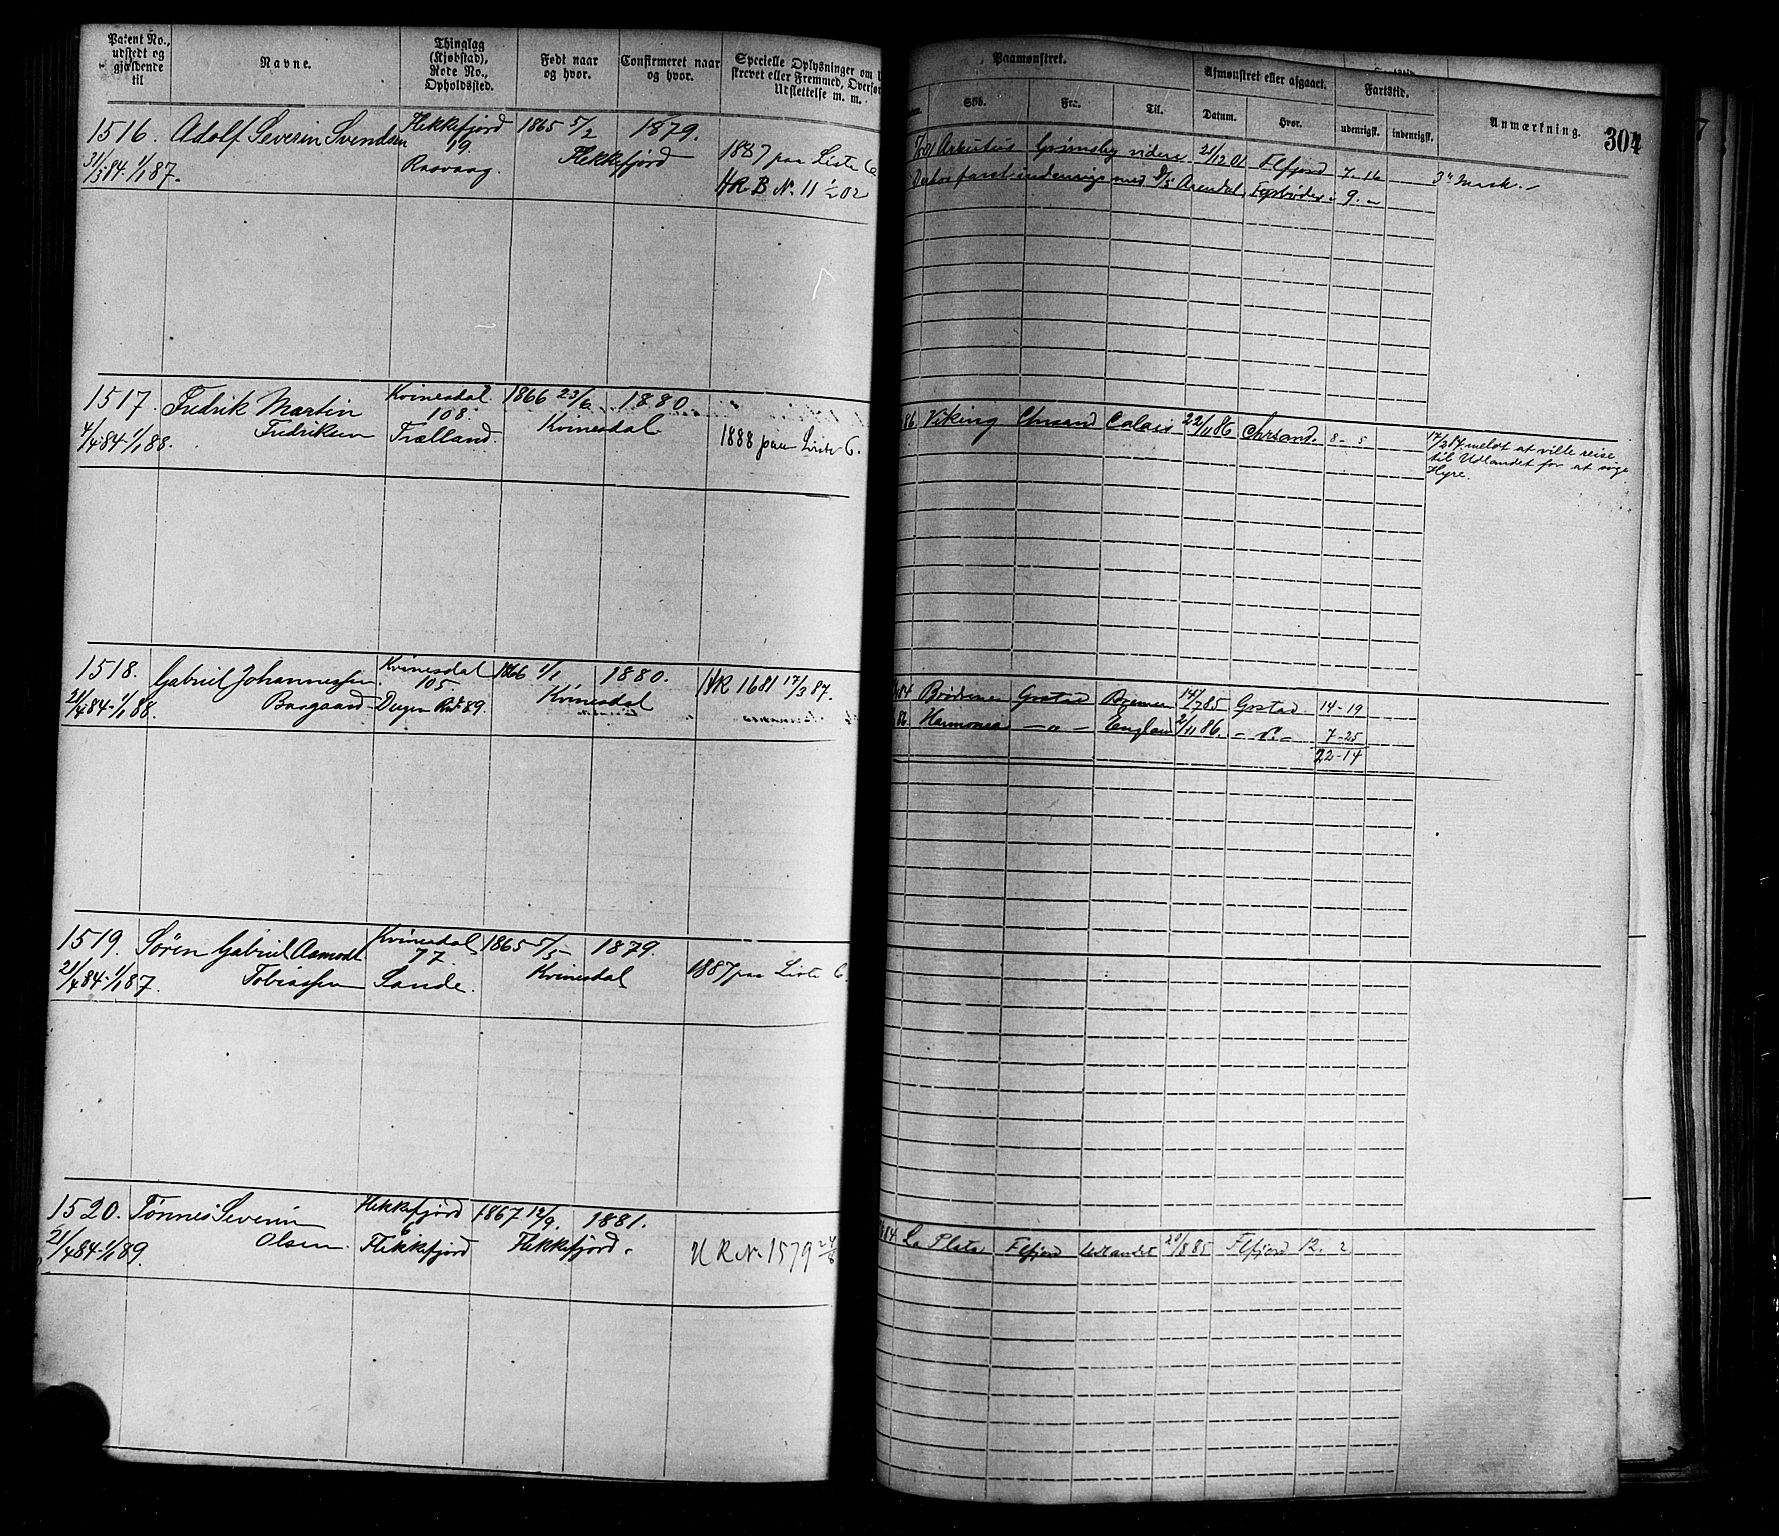 Patent No., udstedt og gjældende til
Navne.
Thinglag (Kjøbstad), Rode No., Opholdssted.
Født naar og hvor.
Confirmeret naar og hvor.
Specielle Oplysninger om
Udslettelse m. m.
Paamønstret.
Skib.
Fra.
Til.
Afmønstret eller afgaaet.
Datum.
Hvor.
Fartstid.
udenrigsk.
indenrigsk.
Anmærkning.
304
1516. Adolf Severin Svendsen
31/5 84 1/1 87.
Flekkefjord
19
Rasvaag.
1865 5/2
1879.
Flekkefjord
1887 paa Liste 6
HRB No. 11 1/2 02
01 Arbutus Grimsby videre 21/12 01 Flfjord 7 - 16
indenrigs med Arendal 9. -
3
1517. Fredrik Martin
Fredriksen
4/4 84 1/1 88.
Kvinesdal
108.
Trælland.
1866 23/6
1880
Kvinesdal
1888 paa Liste 6.
86 Viking Chrsand Calais 22/11 86 Chrsand. 8 - 5
17/2 87 meldt at ville reise
til Udlandet for at søge
Hyre.
1518. Gabriel Johannessen
21/4 84 - 1/1 88.
Kvinesdal
105.
1866 1/1
1880.
Kvinesdal
HR 1681 17/3 87.
84 Brødrene Grstad Bremen 14/7 85 Grstad 14 - 19
86. Harmonia - " - England 2/11 86. 7 - 25
22 - 14
1519. Søren Gabriel Aamodt
Tobiassen
21/4 84 - 1/1 87.
Kvinesdal
77.
Sande.
1865 5/5
1879.
Kvinesdal
1887 paa Liste 6
1520. Tønnes Severin
Olsen.
21/4 84 - 1/1 89.
Flekkefjord
6
Flekkefjord
1867 12/9.
1881.
Flekkefjord.
HR No. 1579
84 La Plata Flfjord Udlandet 20/8 85 Flfjord 12. 2